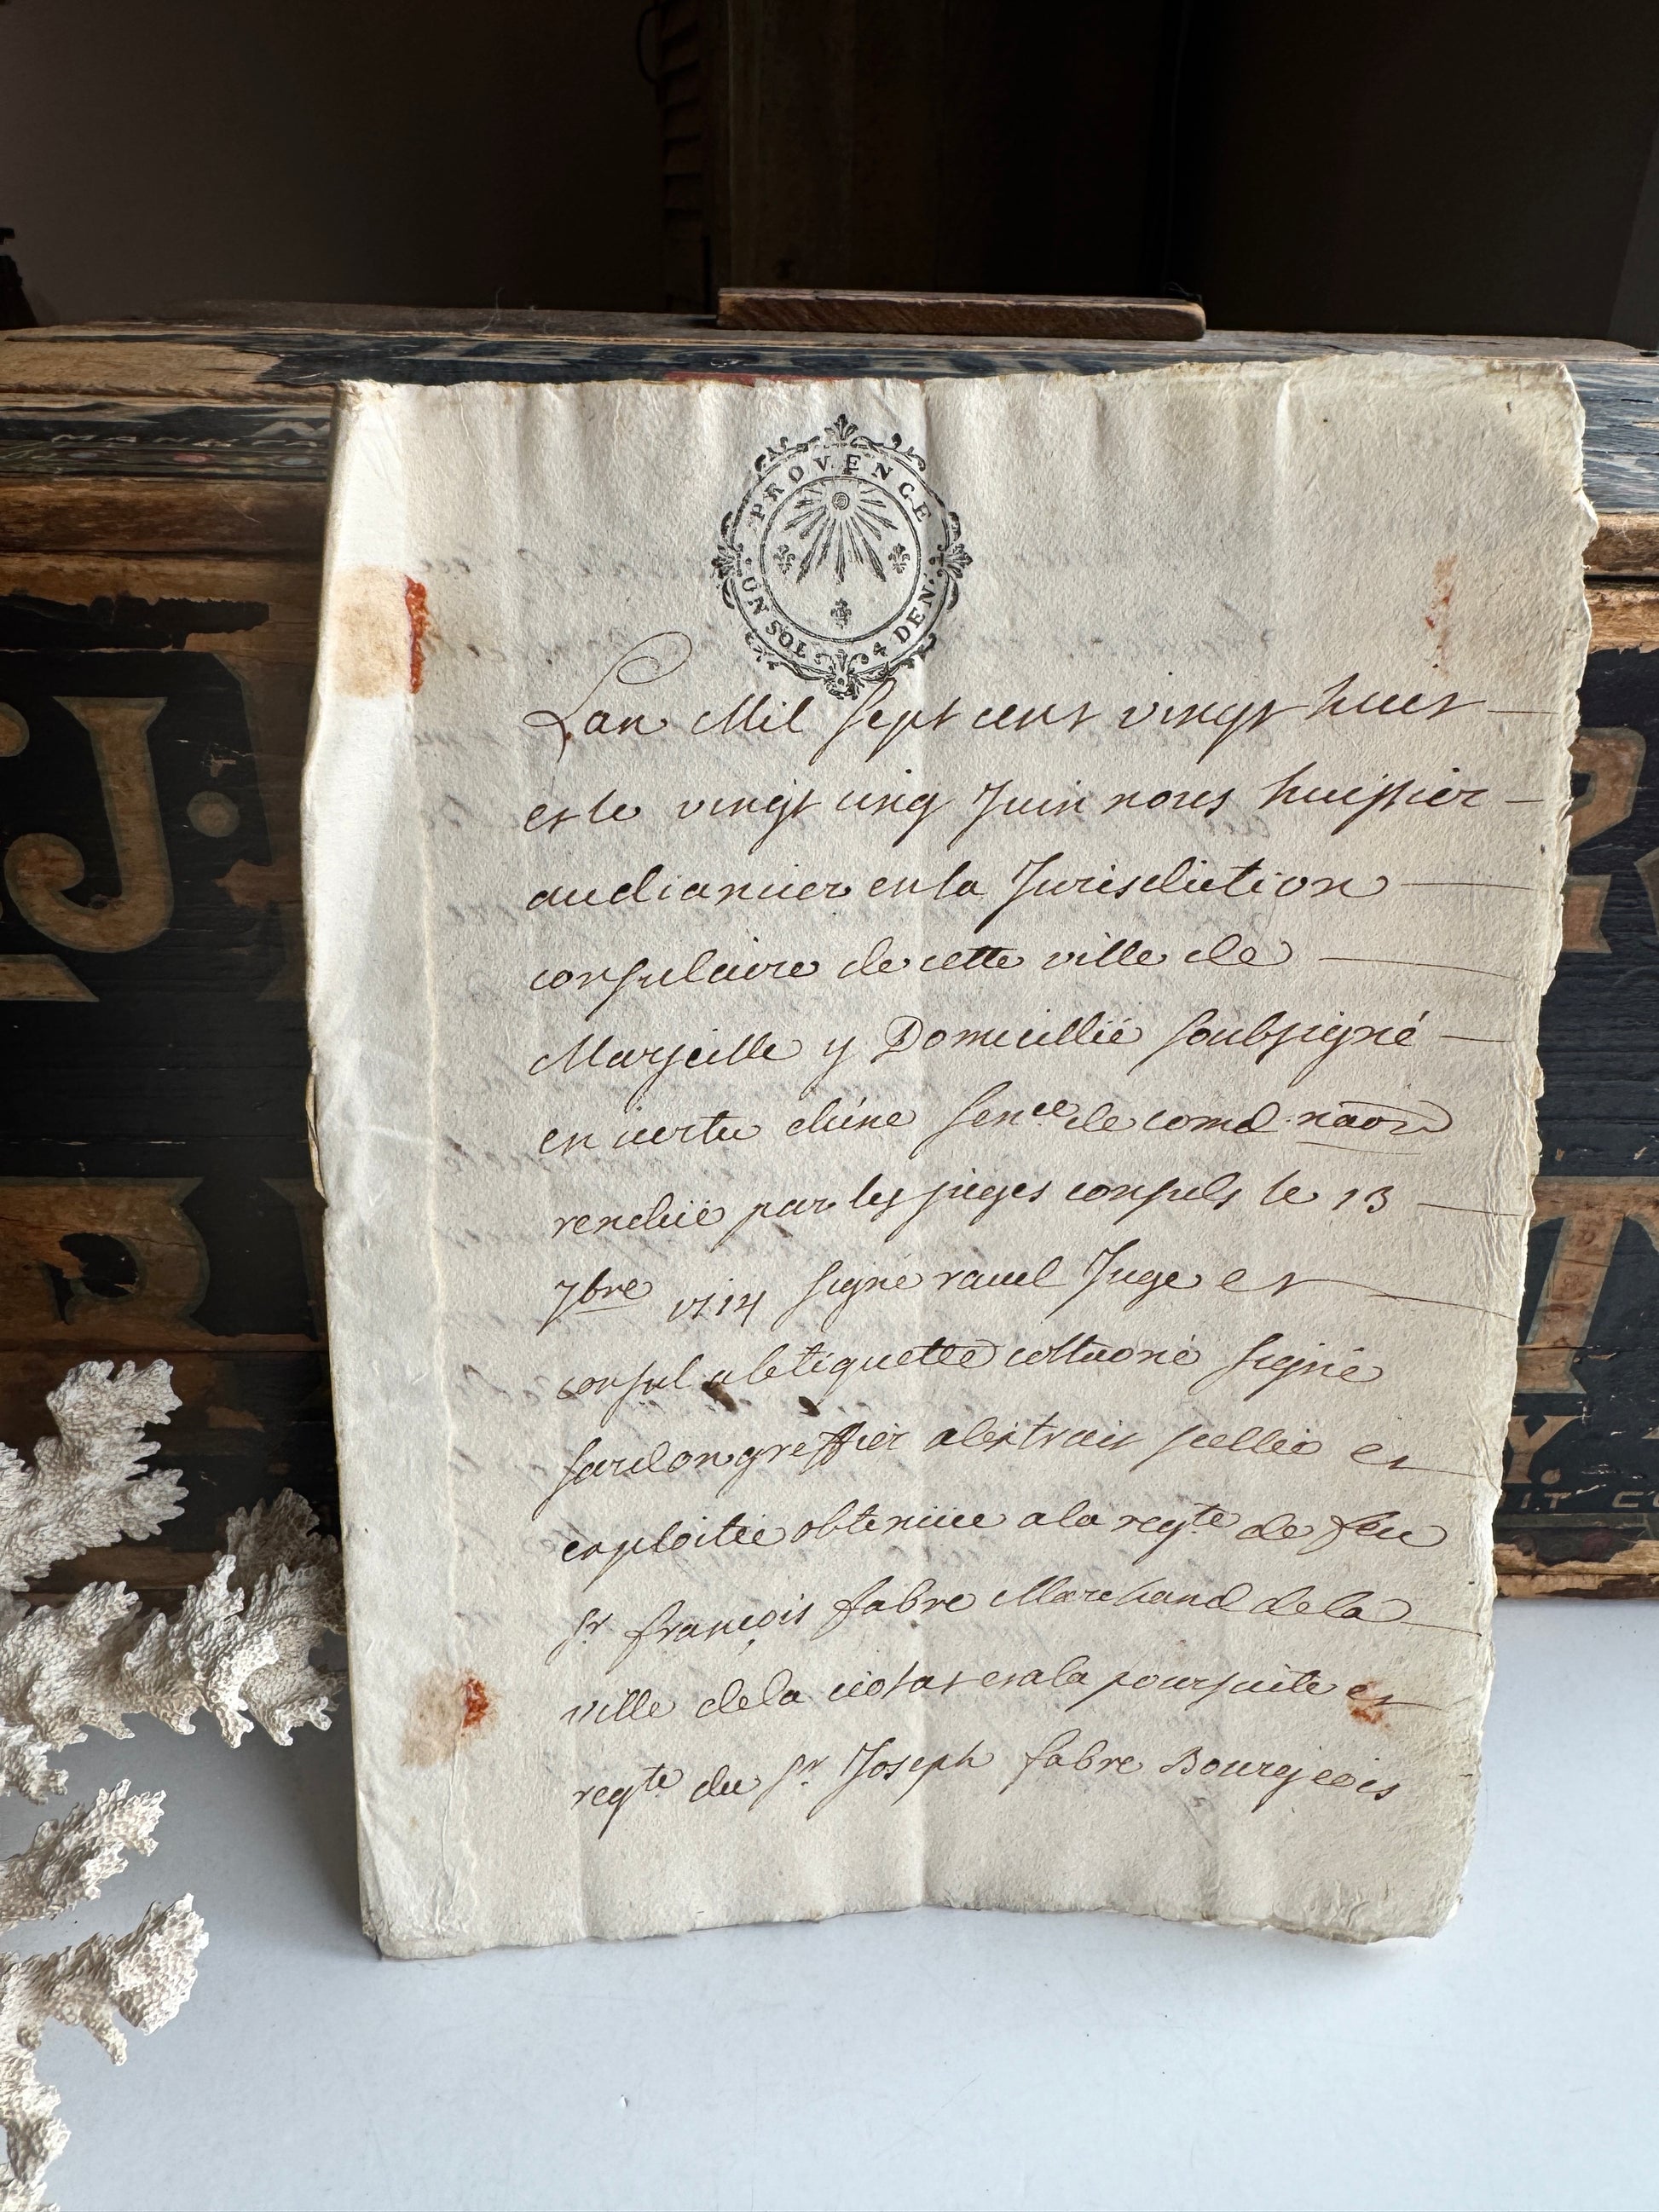 PROVENCE
UN SOL 4 DEN.
Lan Mil sept cent vingt huit
et le vingt cinq Juin nous huissier
audiancier en la Jurisdiction
consulaire de cette ville de
Marseille y Domicillié soubsigné
en vertu d'une sen.ce de comd.naôn
rendüe par les juges consuls le 13
7bre 1714 signé ravel Juge et
consul a letiquette colla.oné signé
greffier a lextrait scellée et
exploitée obtenüe a la reqte de feu
sr françois fabre Marchand de la
ville de la ciotat et a la poursuite et
reqte du sr Joseph fabre Bourgeois
J